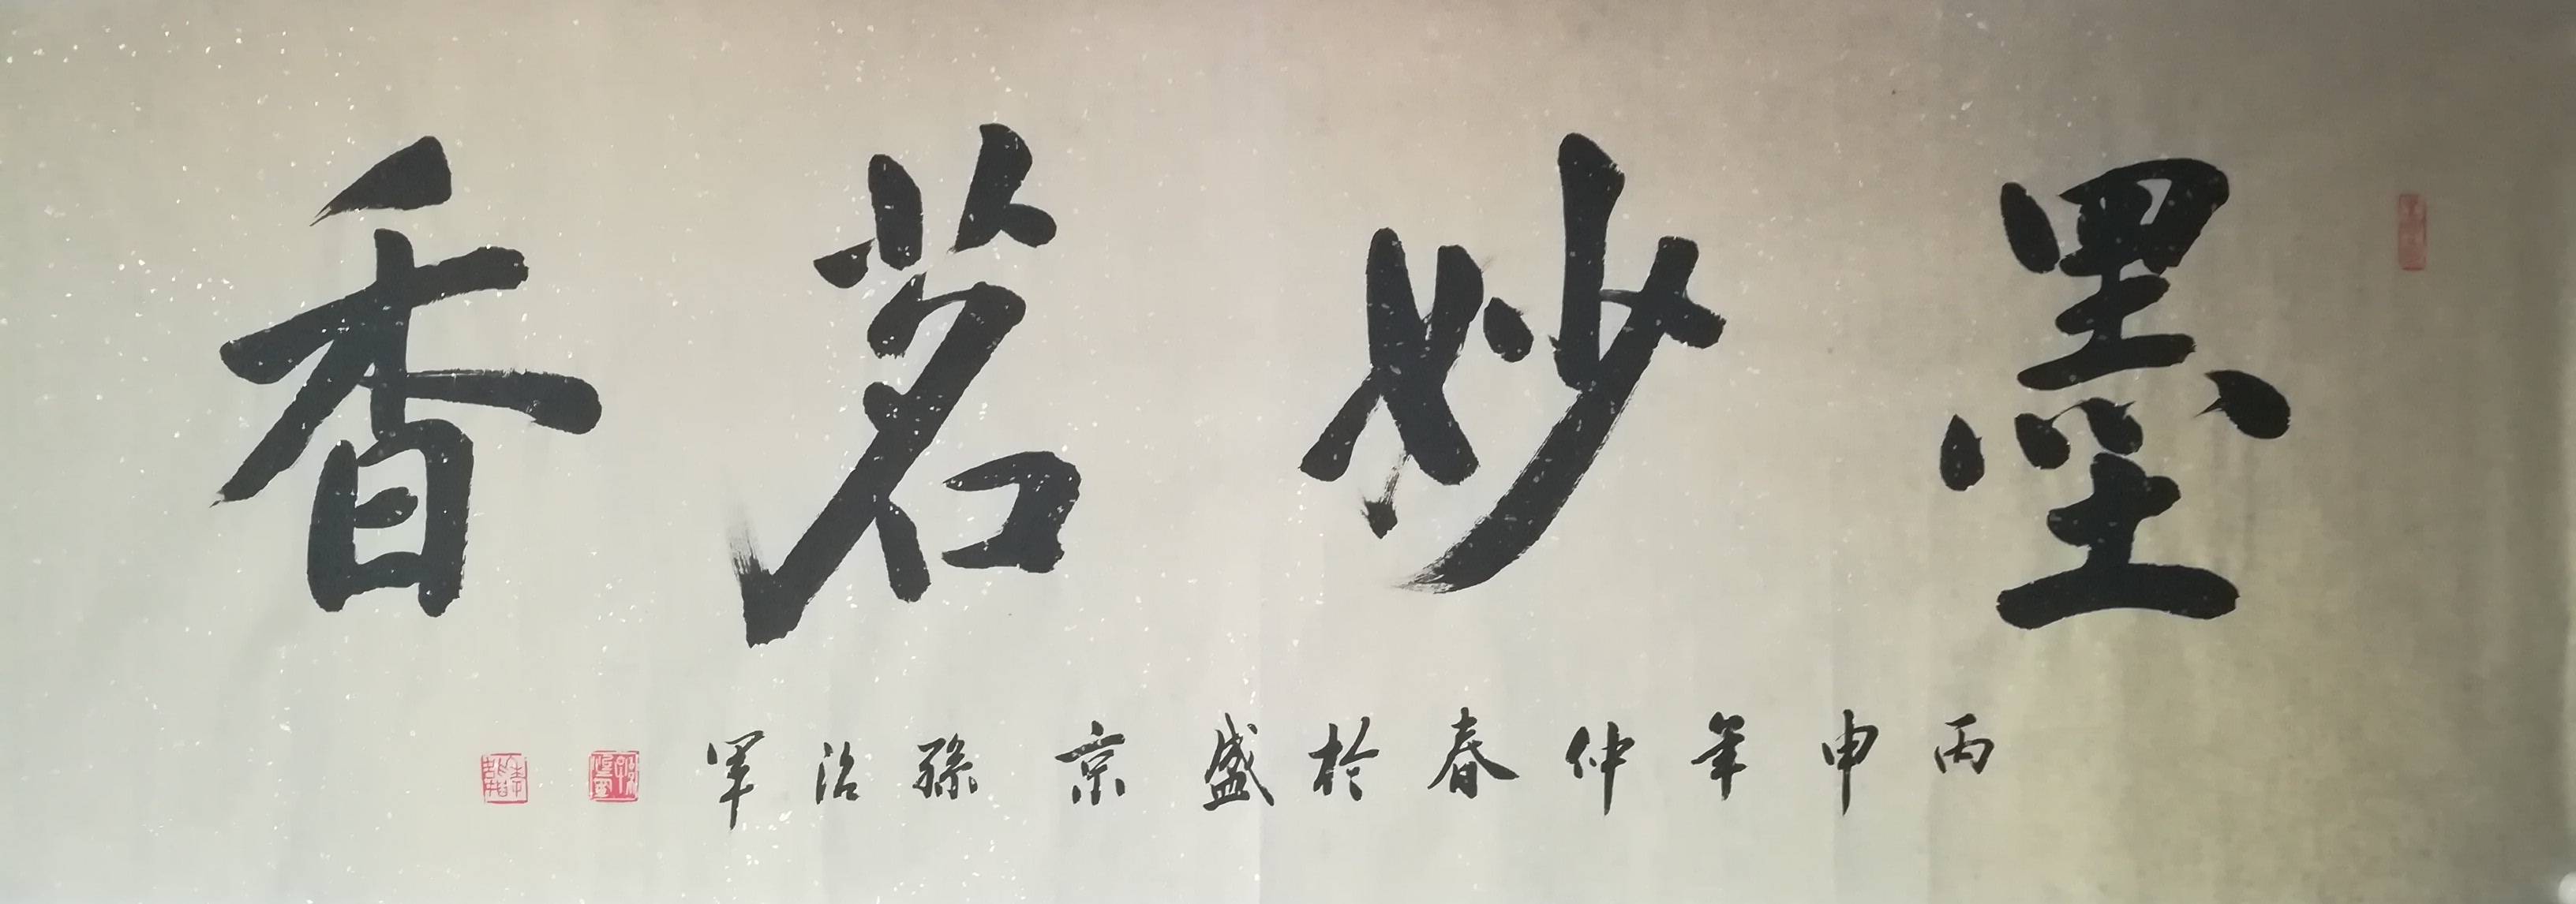 墨妙茗香
丙申年仲春於盛京孫治軍